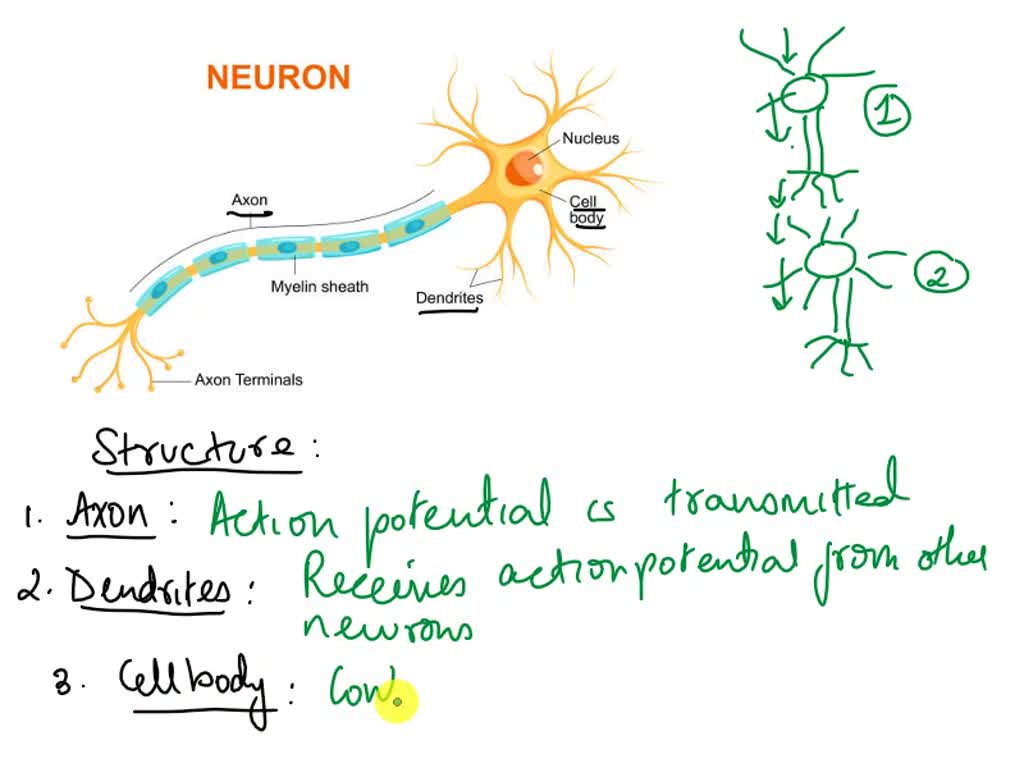 NEURON
Nucleus
Cell
body
Axon
Myelin sheath
Dendrites
Axon Terminals
1
2
Structure:
1. Axon: Action potential is transmitted
2. Dendrites: Receives action potential from other
neurons
3. Cell body: